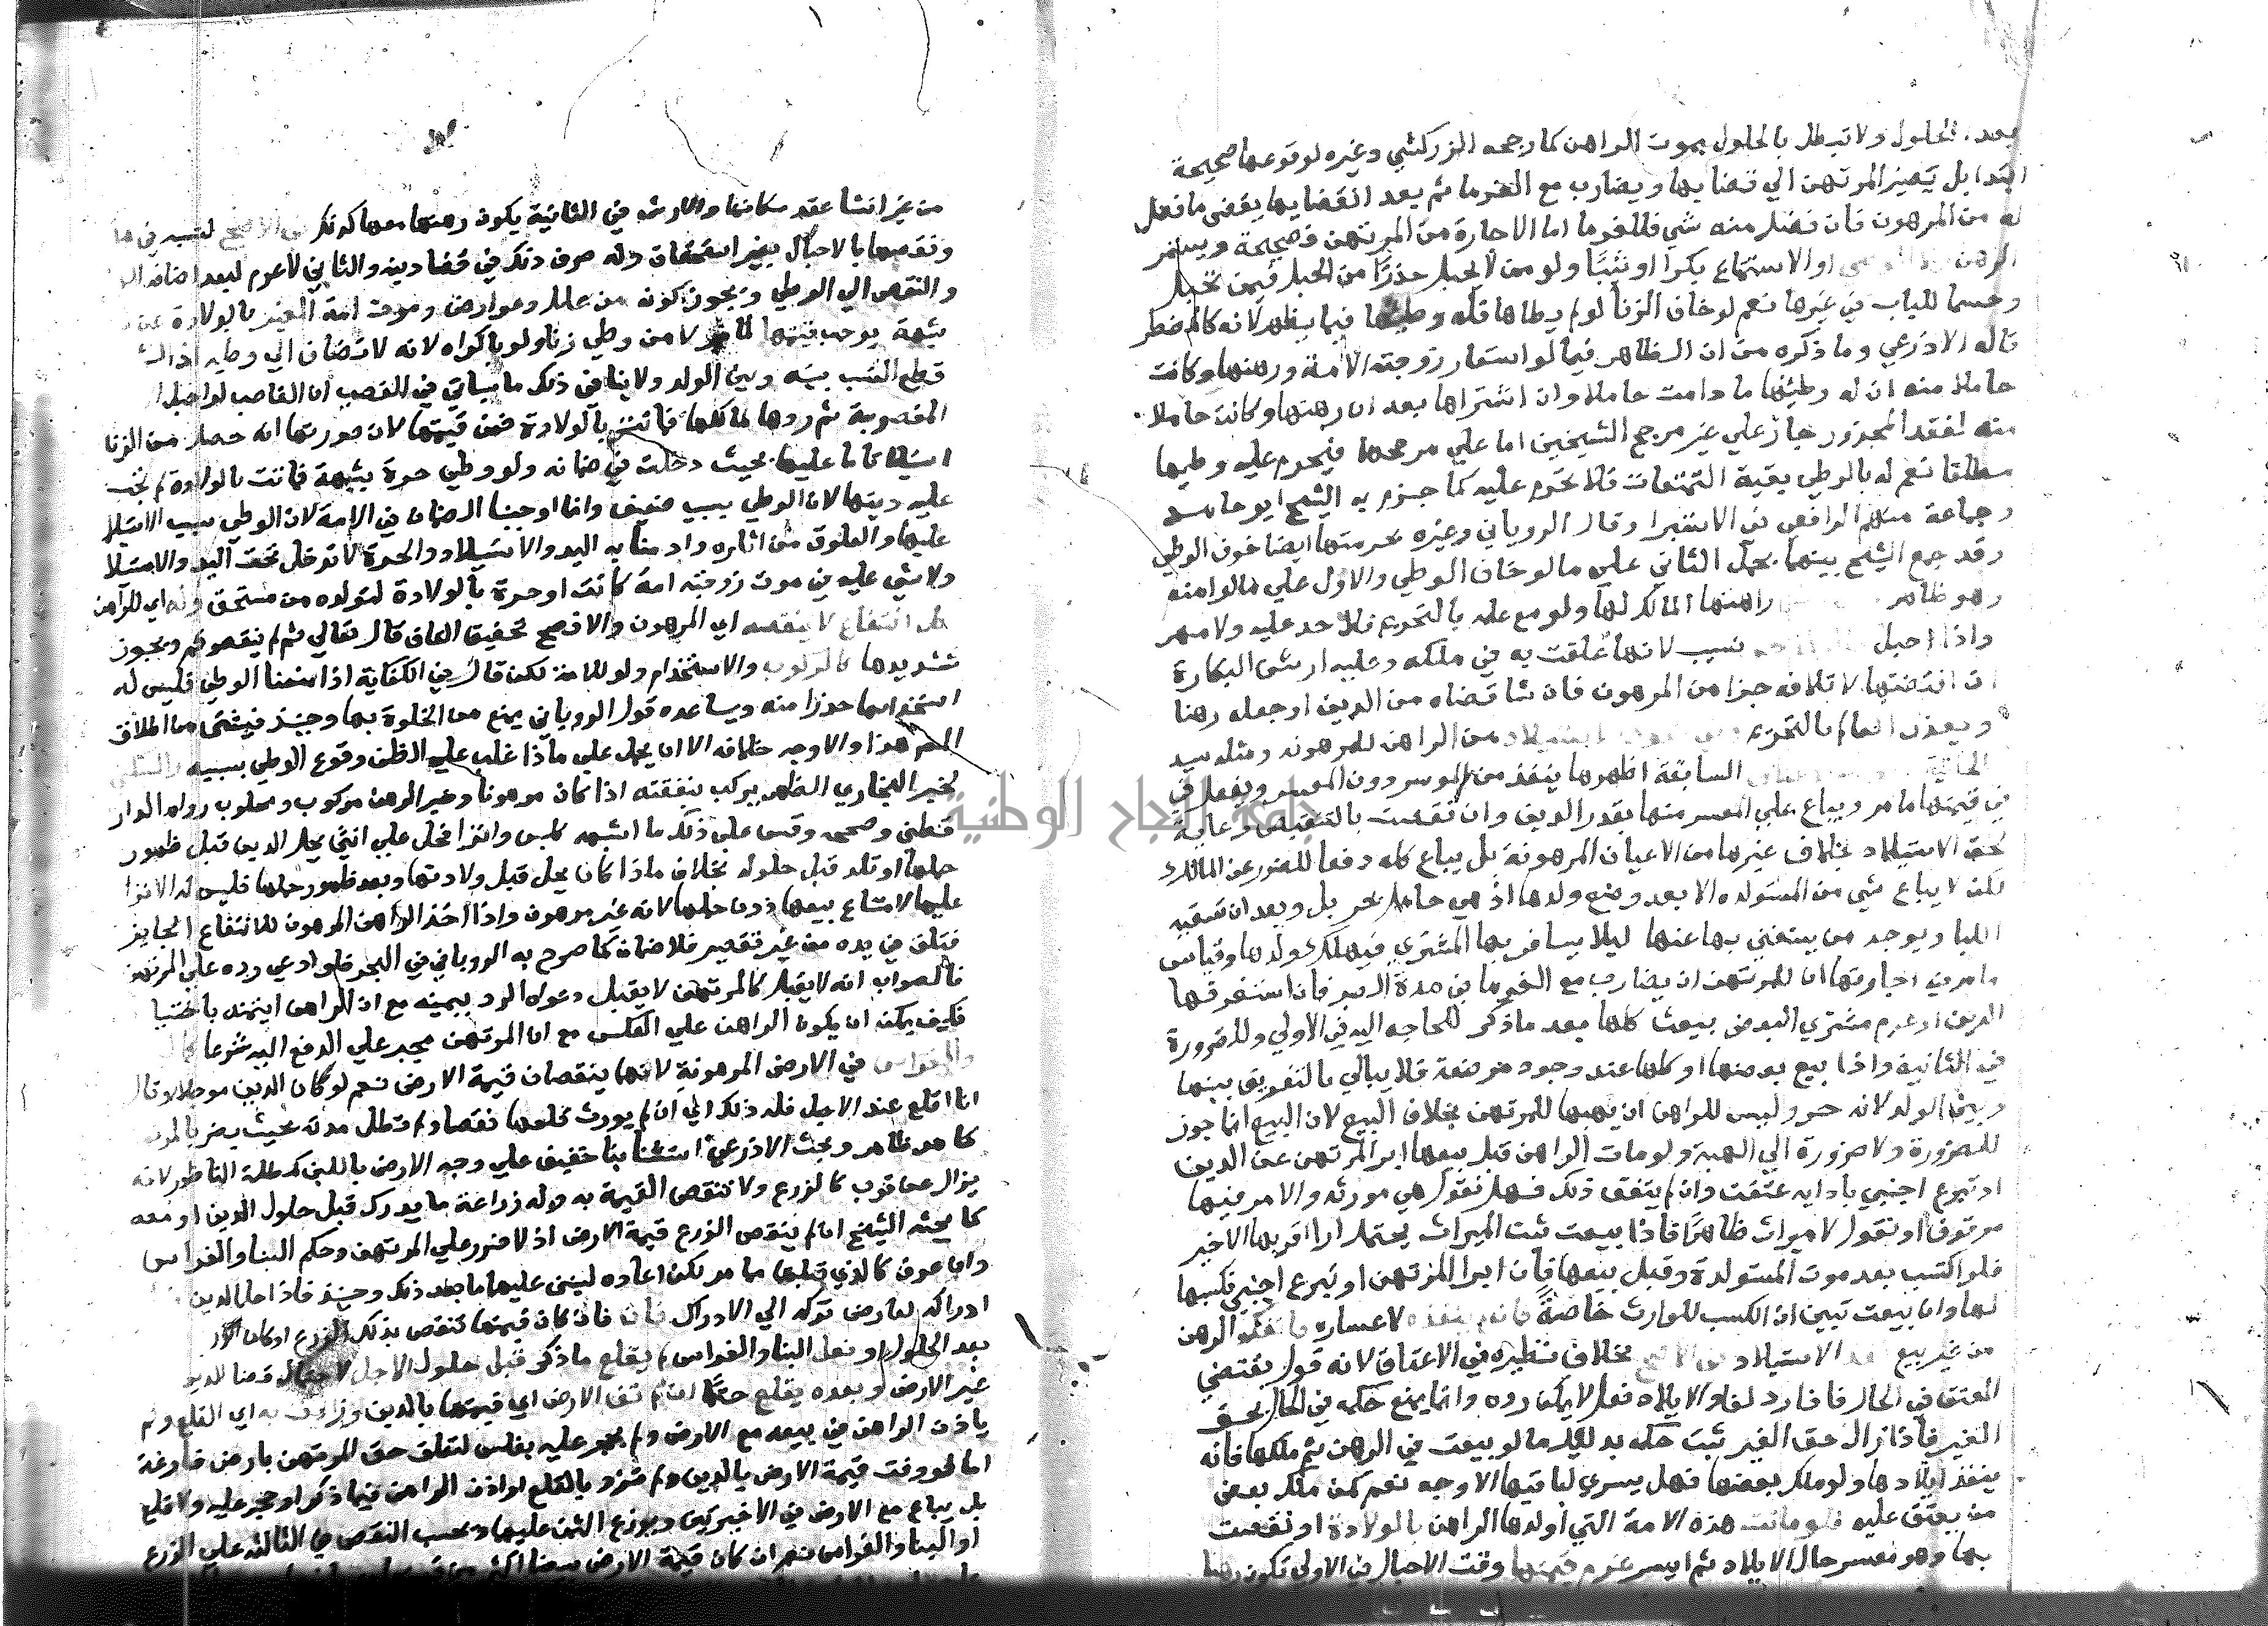 بعد الحلول ولا تبطل بالحلول بموت الراهن كما رجحه الزركشي وغيره لوقوعها صحيحة
ابتدا بل يصير المرتهن الي قضايها ويضارب مع الغرما ثم بعد انقضايها يقضي ما فضل
له من المرهون فان فضل منه شي فللغرما اما الاجارة من المرتهن فصحيحة ويستمر
الرهن او الاستمتاع بكرا او ثيبا ولو ممن لا يحبل حذرا من الحبل فيمن تحبل
وحسما للباب في غيرها نعم لو خاف الزنا لو لم يطاها فله وطيها فيما يظهر لانه كالمضطر
قاله الاذرعي وما ذكره من ان الظاهر فيما لو استعار زوجته الامة ورهنها وكانت
حاملا منه ان له وطيها ما دامت حاملا وان اشتراها بعد ان رهنها وكانت حاملا
منه لفقد المحذور جاز علي غير مرجح الشيخين اما علي مرجحها فيحرم عليه وطيها
مطلقا نعم له بالوطي بقية التمتعات فلا تحرم عليه كما جزم به الشيخ ابو حامد
وجماعة منهم الرافعي في الاستبرا وقال الروياني وغيره بحرمتها ايضا خوف الوطي
وقد جمع الشيخ بينهما بحمل الثاني علي ما لو خاف الوطي والاول علي ما لو امنه
وهو ظاهر راهنها المالك لها ولو مع علمه بالتحريم فلا حد عليه ولا مهر
واذا احبل نسيب لانها علقت به في ملكه وعليه ارش البكارة
ان افتضها لاتلافه جزا من المرهون فان شا قضاه من الدين او جعله رهنا
ويعذر العالم بالتحريم من الراهن للمرهونه ومثله سيد
السابقة اظهرها ينفذ من الموسر دون المعسر ويفعل في
في قيمتها ما مر ويباع علي المعسر منها بقدر الدين وان نقصت بالتشقيص رعاية
لحق الاستيلاد بخلاف غيرها من الاعيان المرهونة بل يباع كله دفعا للضرر عن المالك
لكن لا يباع شي من المستولده الا بعد وضع ولدها اذ هي حامل بحر بل وبعد ان تسقيه
اللبا ويوجد من يستغني بها عنها ليلا يسافر بها المشتري فيهلك ولدها وقياس
ما مر في اجارتها ان للمرتهن ان يضارب مع الغرما في مدة الصبر فان استغرقها
الدين او عدم مشتري البعض بيعت كلها بعد ما ذكر للحاجة اليه في الاولي وللضرورة
في الثانية واذا بيع بعضها او كلها عند وجود مرضعة فلا يبالي بالتفريق بينها
وبين الولد لانه حر وليس للراهن ان يهبها للمرتهن بخلاف البيع لان البيع انما جوز
للضرورة ولا ضرورة الي الهبة ولو مات الراهن قبل بيعها ابر المرتهن عن الدين
او تبرع اجنبي بادايه عتقت وان لم يتفق ذلك فهل نقول هي مورثه والامر فيها
موقوف او نقول لا ميراث ظاهرا فاذا بيعت ثبت الميراث يحتمل ارا اقربها الاخير
فلو اكتسب بعد موت المستولدة وقبل بيعها فان ابرا المرتهن او تبرع اجنبي فكسبها
لها وان بيعت تبين ان الكسب للوارث خاصة فان لم ينفذه لاعساره فانفك الرهن
من غير بيع نفذ الاستيلاد في الاصح بخلاف نظيره في الاعتاق لانه قول يقتضي
العتق في الحال فاذا رد لغا والايلاد فعل لا يمكن رده وانما يمنع حكمه في الحال لحق
الغير فاذا زال حق الغير ثبت حكمه بدليل ما لو بيعت في الرهن ثم ملكها فانه
ينفذ ايلادها ولو ملك بعضها فهل يسري لباقيها الاوجه نعم كمن ملك بعض
من يعتق عليه فلو ماتت هذه الامة التي اولدها الراهن بالولادة او نقصت
بها وهو معسر حال الايلاد ثم ايسر غرم قيمتها وقت الاحبال في الاولي تكون رهنا
من غير انشا عقد مكانها والارش في الثانية يكون رهنا معها كذلك في الاصح لتسببه في هلا
ونقصها بالاحبال بغير استحقاق وله صرف ذلك في قضا دينه والثاني لا غرم لبعد اضافة
والنقص الي الوطي ويجوز كونه من علل وعوارض وموت امة الغير بالولادة عن
شبهة يوجب قيمتها لما مر لا من وطي زنا ولو باكراه لانه لا تضاف الي وطيه اذ ال
قطع النسب بينه وبين الولد ولا ينافي ذلك ما سياتي في الغصب ان الغاصب لو احبل
المغصوبة ثم ردها لمالكها فماتت بالولادة ضمن قيمتها لان صورتها انه حصل من الزنا
استيلا تاما عليها بحيث دخلت في ضمانه ولو وطي حرة بشبهة فماتت بالولادة لم تجب
عليه ديتها لان الوطي سبب ضعيف وانما اوجبنا الضمان في الامة لان الوطي سبب الاستيلا
عليها والعلوق من اثاره وادمنا به اليد والاستيلاد والحرة لا تدخل تحت اليد والاستيلا
ولا شي عليه في موت زوجته امة كانت او حرة بالولادة لتولده من مستحق وله اي للراهن
كل انتفاع لا ينقصه اي المرهون والافصح تخفيف القاف قال تعالي ثم لم ينقصوكم ويجوز
تشديدها كالركوب والاستخدام ولو للامة لكن قال في الكفاية اذا منعنا الوطي فليس له
استخدامها حذرا منه ويساعده قول الروياني يمنع من الخلوة بها وحينئذ فيستثني من اطلاق
المص هذا والاوجه خلافه الا ان يحمل علي ما اذا غلب علي الظن وقوع الوطي بسببه والسكني
لخبر البخاري الظهر يركب بنفقته اذا كان مرهونا وخبر الرهن مركوب ومحلوب رواه الدار
قطني وصححه وقس علي ذلك ما اشبهه كلبس وانزا فحل علي انثي يحل الدين قبل ظهور
حملها او تلد قبل حلوله بخلاف ما اذا كان يحل قبل ولادتها وبعد ظهور حملها فليس له الانزا
عليها لامتناع بيعها دون حملها لانه غير مرهون واذا اخذ الراهن المرهون للانتفاع الجايز
فتلف في يده من غير تقصير فلا ضمان كما صرح به الروياني في البحر فلو ادعي رده علي المرتهن
فالصواب انه لا يقبل كالمرتهن لا يقبل دعواه الرد بيمينه مع ان الراهن ايتمنه باختيا
فكيف يكون الراهن علي العكس مع ان المرتهن مجبر علي الدفع اليه شرعا لا
والغراس في الارض المرهونة لانها ينقصان قيمة الارض نعم لو كان الدين موجلا وقال
انا اقلع عند الاجل فله ذلك الي ان لم يورث قلعها نقصا ولم تطل مدته بحيث يضر بالمرتهن
كما هو ظاهر وبحث الاذرعي استثنا بنا خفيف علي وجه الارض باللبن كمظلة الناطور لانه
يزال عن قرب كالزرع ولا تنقص القيمة به وله زراعة ما يدرك قبل حلول الدين او معه
كما بحثه الشيخ ان لم ينقص الزرع قيمة الارض اذ لا ضرر علي المرتهن وحكم البنا والغراس
وان عرف كالذي قبلها مما مر لكن اعاده ليبني عليها ما بعد ذلك وحينئذ فاذا حل الدين
ادراكه لعارض تركه الي الادراك فان كان قيمتها تنقص بذلك الزرع او كان الزر
بعد الحلول او فعل البنا والغراس لم يقلع ما ذكر قبل حلول الاجل لاحتمال قضا الدين
غير الارض وبعده يقلع حتما ان لم تف الارض اي قيمتها بالدين وزادت به اي القلع ولم
ياذن الراهن في بيعه مع الارض ولم يحجر عليه بفلس لتعلق حق المرتهن بارض فارغة
اما لو وفت قيمة الارض بالدين ولم تزد بالقلع او اذن الراهن فيما ذكر او حجر عليه ولا قلع
بل يباع مع الارض في الاخيرتين ويوزع الثمن عليهما ويحسب النقص في الثالثه علي الزرع
او البنا والغراس نعم ان كان قيمة الارض بيضا اكثر من
جامعة النجاح الوطنية